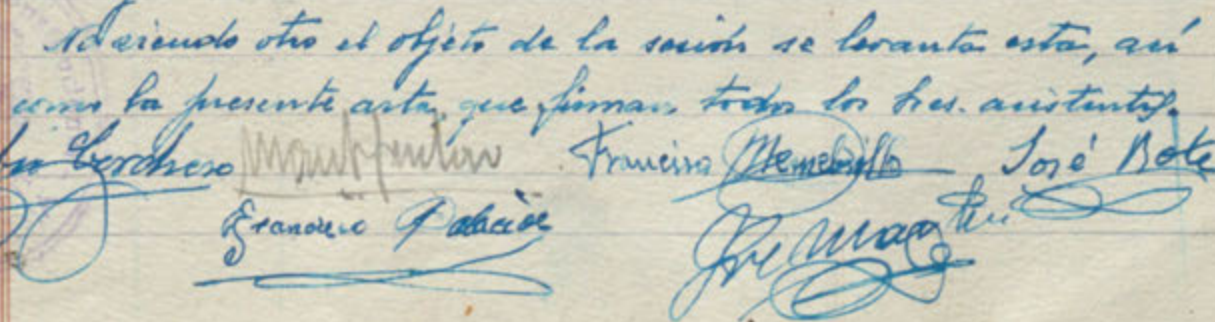 No siendo otro el objeto de la sesión se levanta esta, así
como la presente acta, que firman todos los Sres. asistentes.
Francisco José Bote
Francisco Palacios